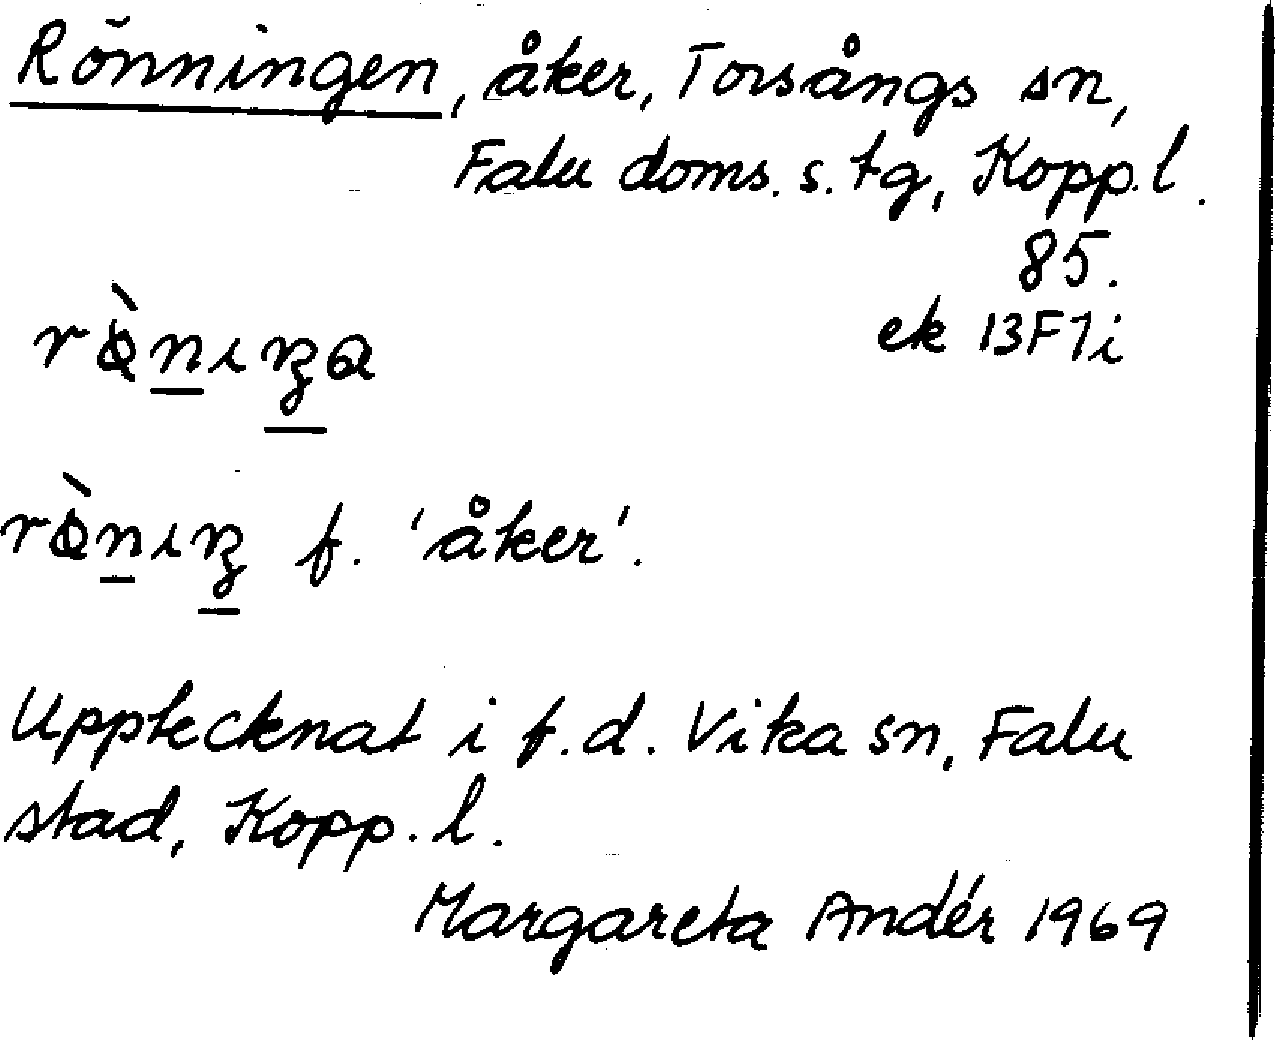 Rönningen, åker, Torsångs sn,
Falu doms. s. tg, Kopp. l.
85.
ek 13F7i
f. 'åker'.
Upptecknat i f.d. Vika sn, Falu
stad, Kopp. l.
Margareta Andér 1969